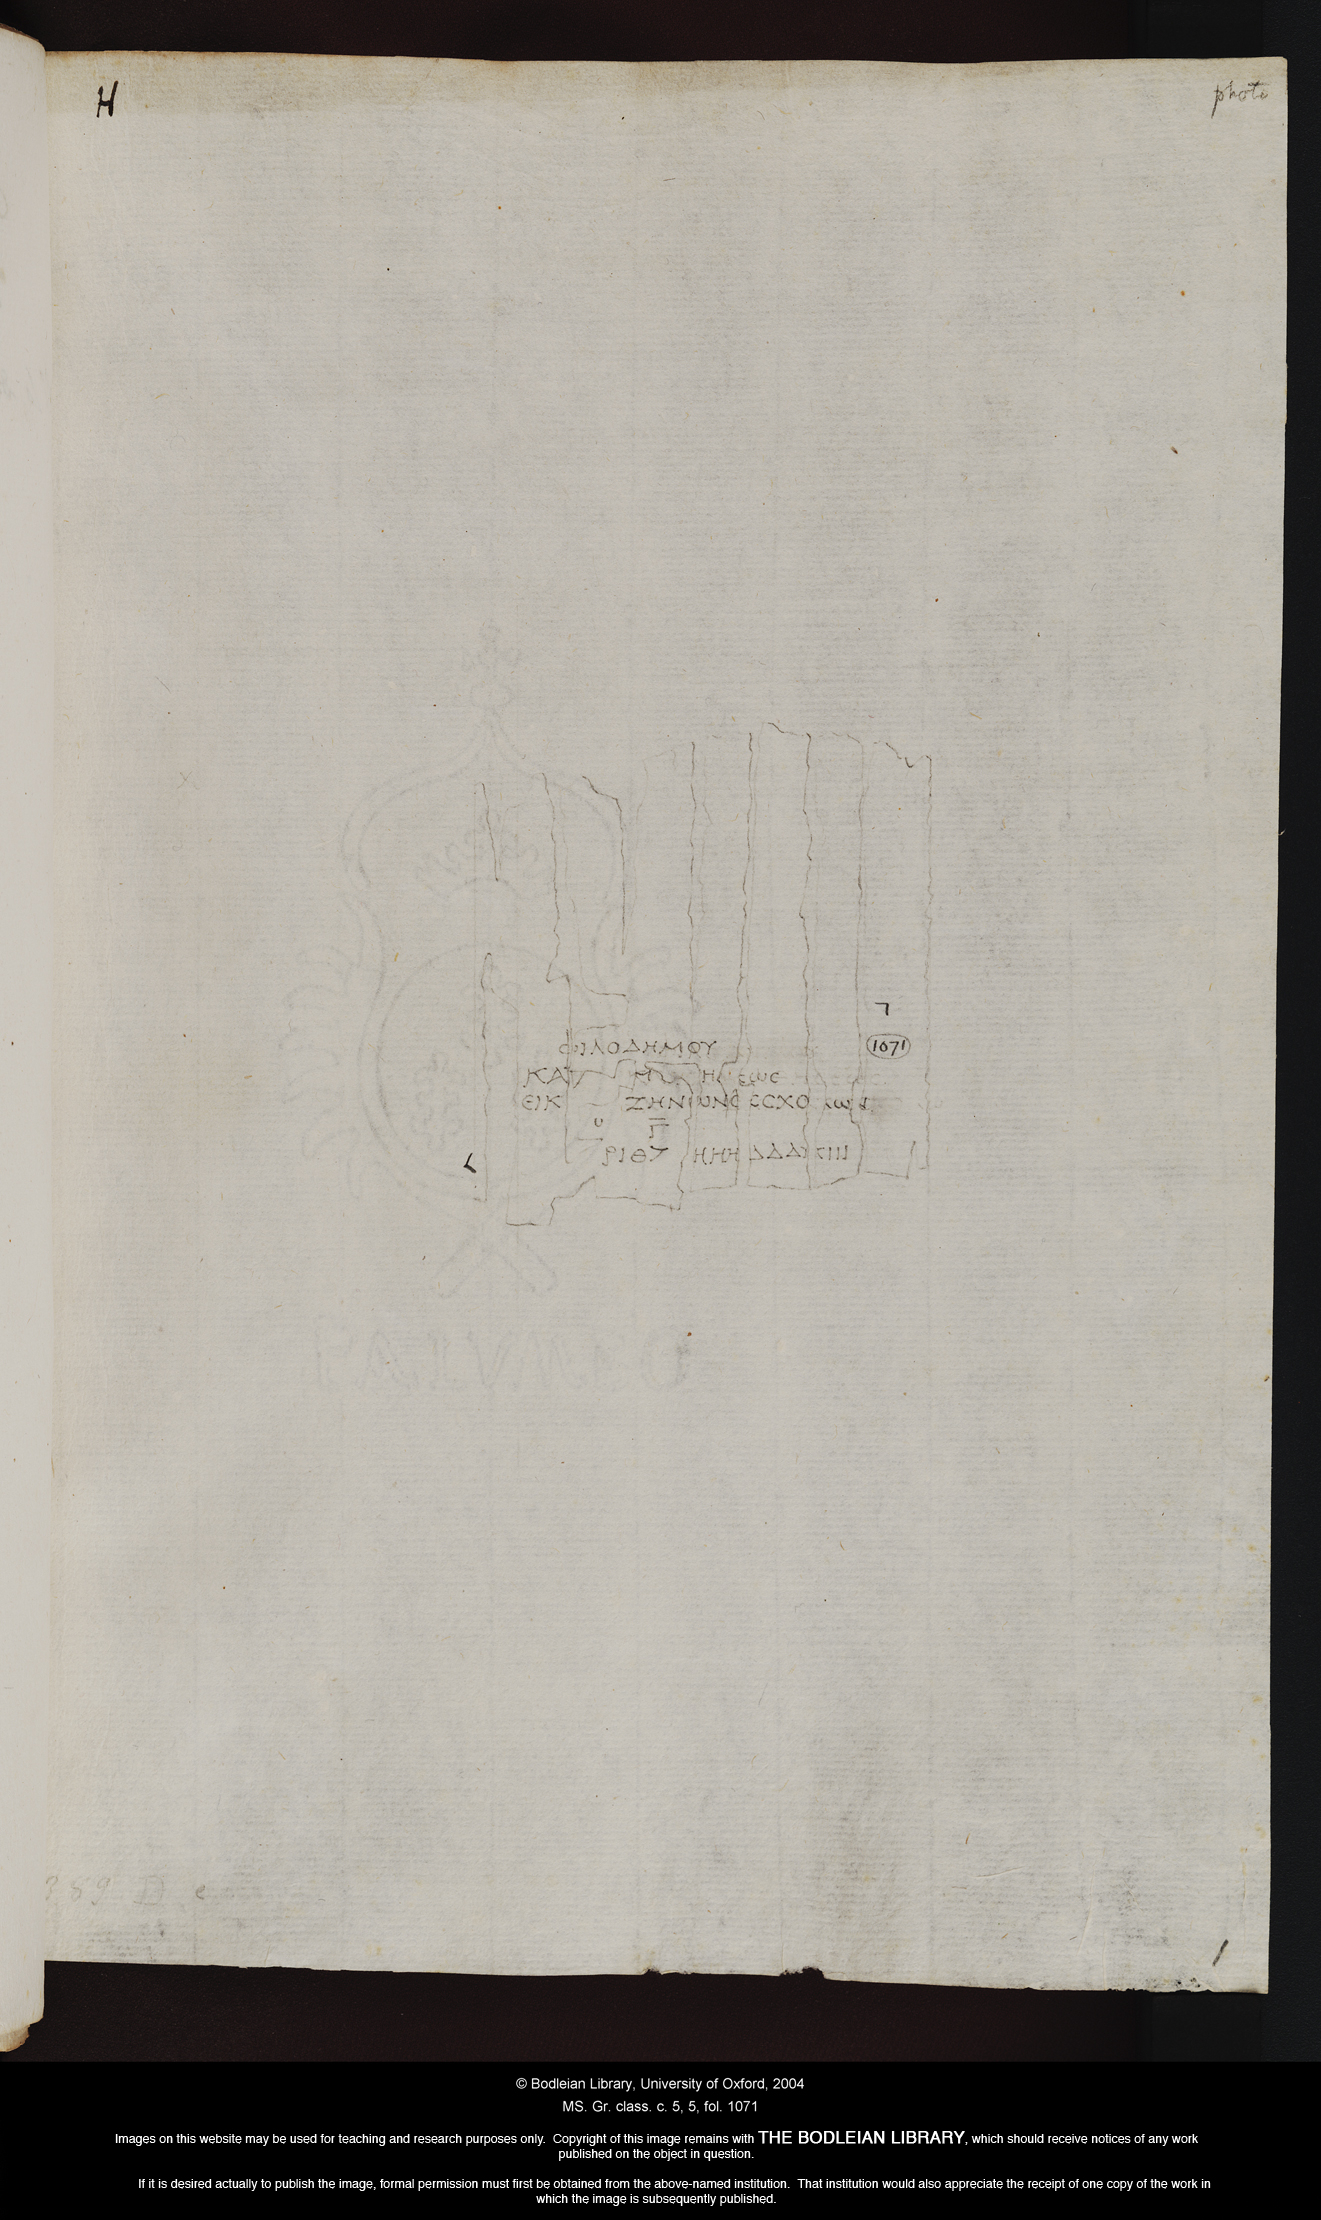 H
photo
ΦΙΛΟΔΗΜΟΥ
ΚΑΤ Μ Η ΕΩС
ΕΙΚ ΖΗΝ ΝΟС СΧΟ ΛΩΝ
Γ
ΡΙΘ ΗΗΗ ΔΔΔ ΙΙΙ
1071
1
© Bodleian Library, University of Oxford, 2004
MS. Gr. class. c. 5, 5, fol. 1071
Images on this website may be used for teaching and research purposes only. Copyright of this image remains with THE BODLEIAN LIBRARY, which should receive notices of any work
published on the object in question.
If it is desired actually to publish the image, formal permission must first be obtained from the above-named institution. That institution would also appreciate the receipt of one copy of the work in
which the image is subsequently published.